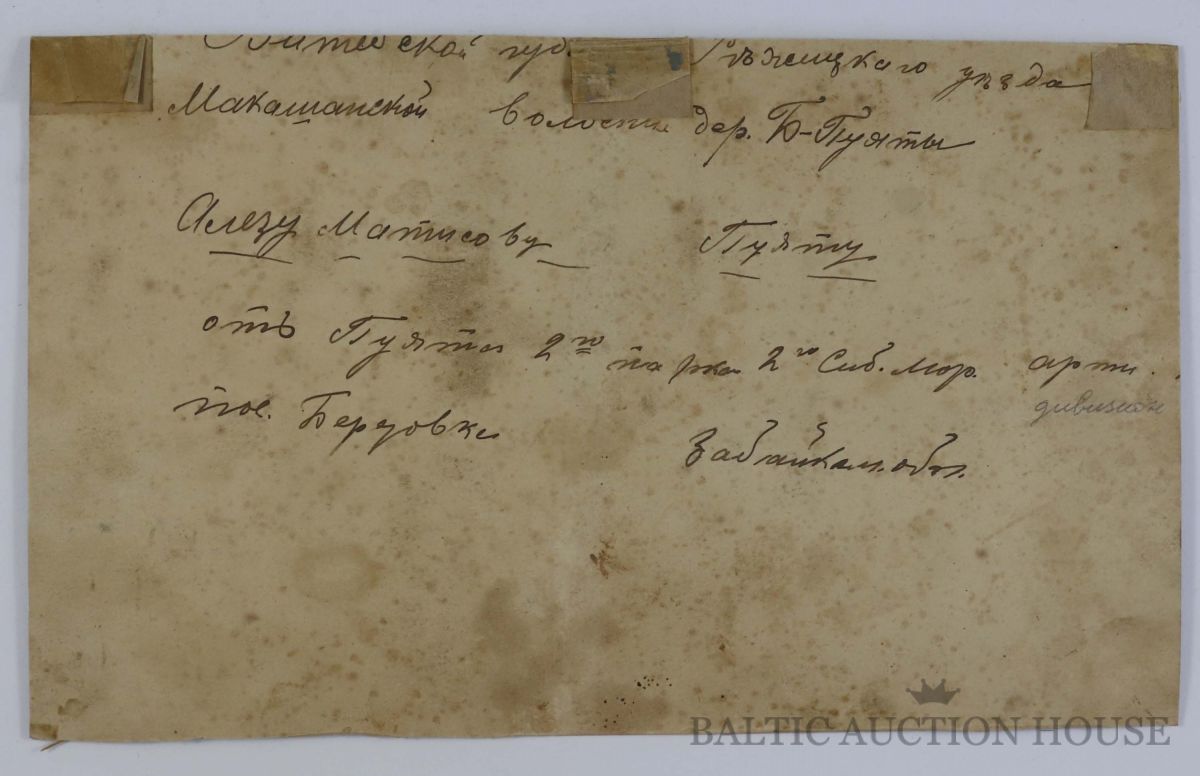 Витебской губ. Рѣжицкаго уѣзда
Макашанской волости дер. Б-Пуяты
Алезу Матисову Пуяту
отъ Пуяты 2го парка 2го Сиб. Мор. арти.
дивизион
пос. Березовка
Забайкал. обл.
BALTIC AUCTION HOUSE